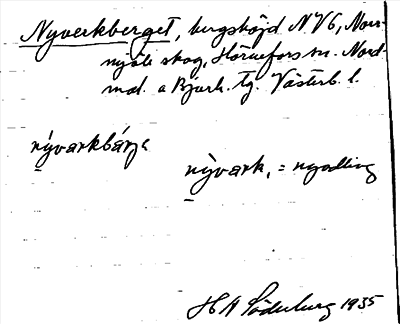 Nyverkberget, bergshöjd N.V6, Norr-
mjöle skog, Hörnefors sn. Nord-
mal. o Bjurh. tg. Västerb. l.
nývarkbárje
nỳvark, = nyodling
H A Söderberg 1935